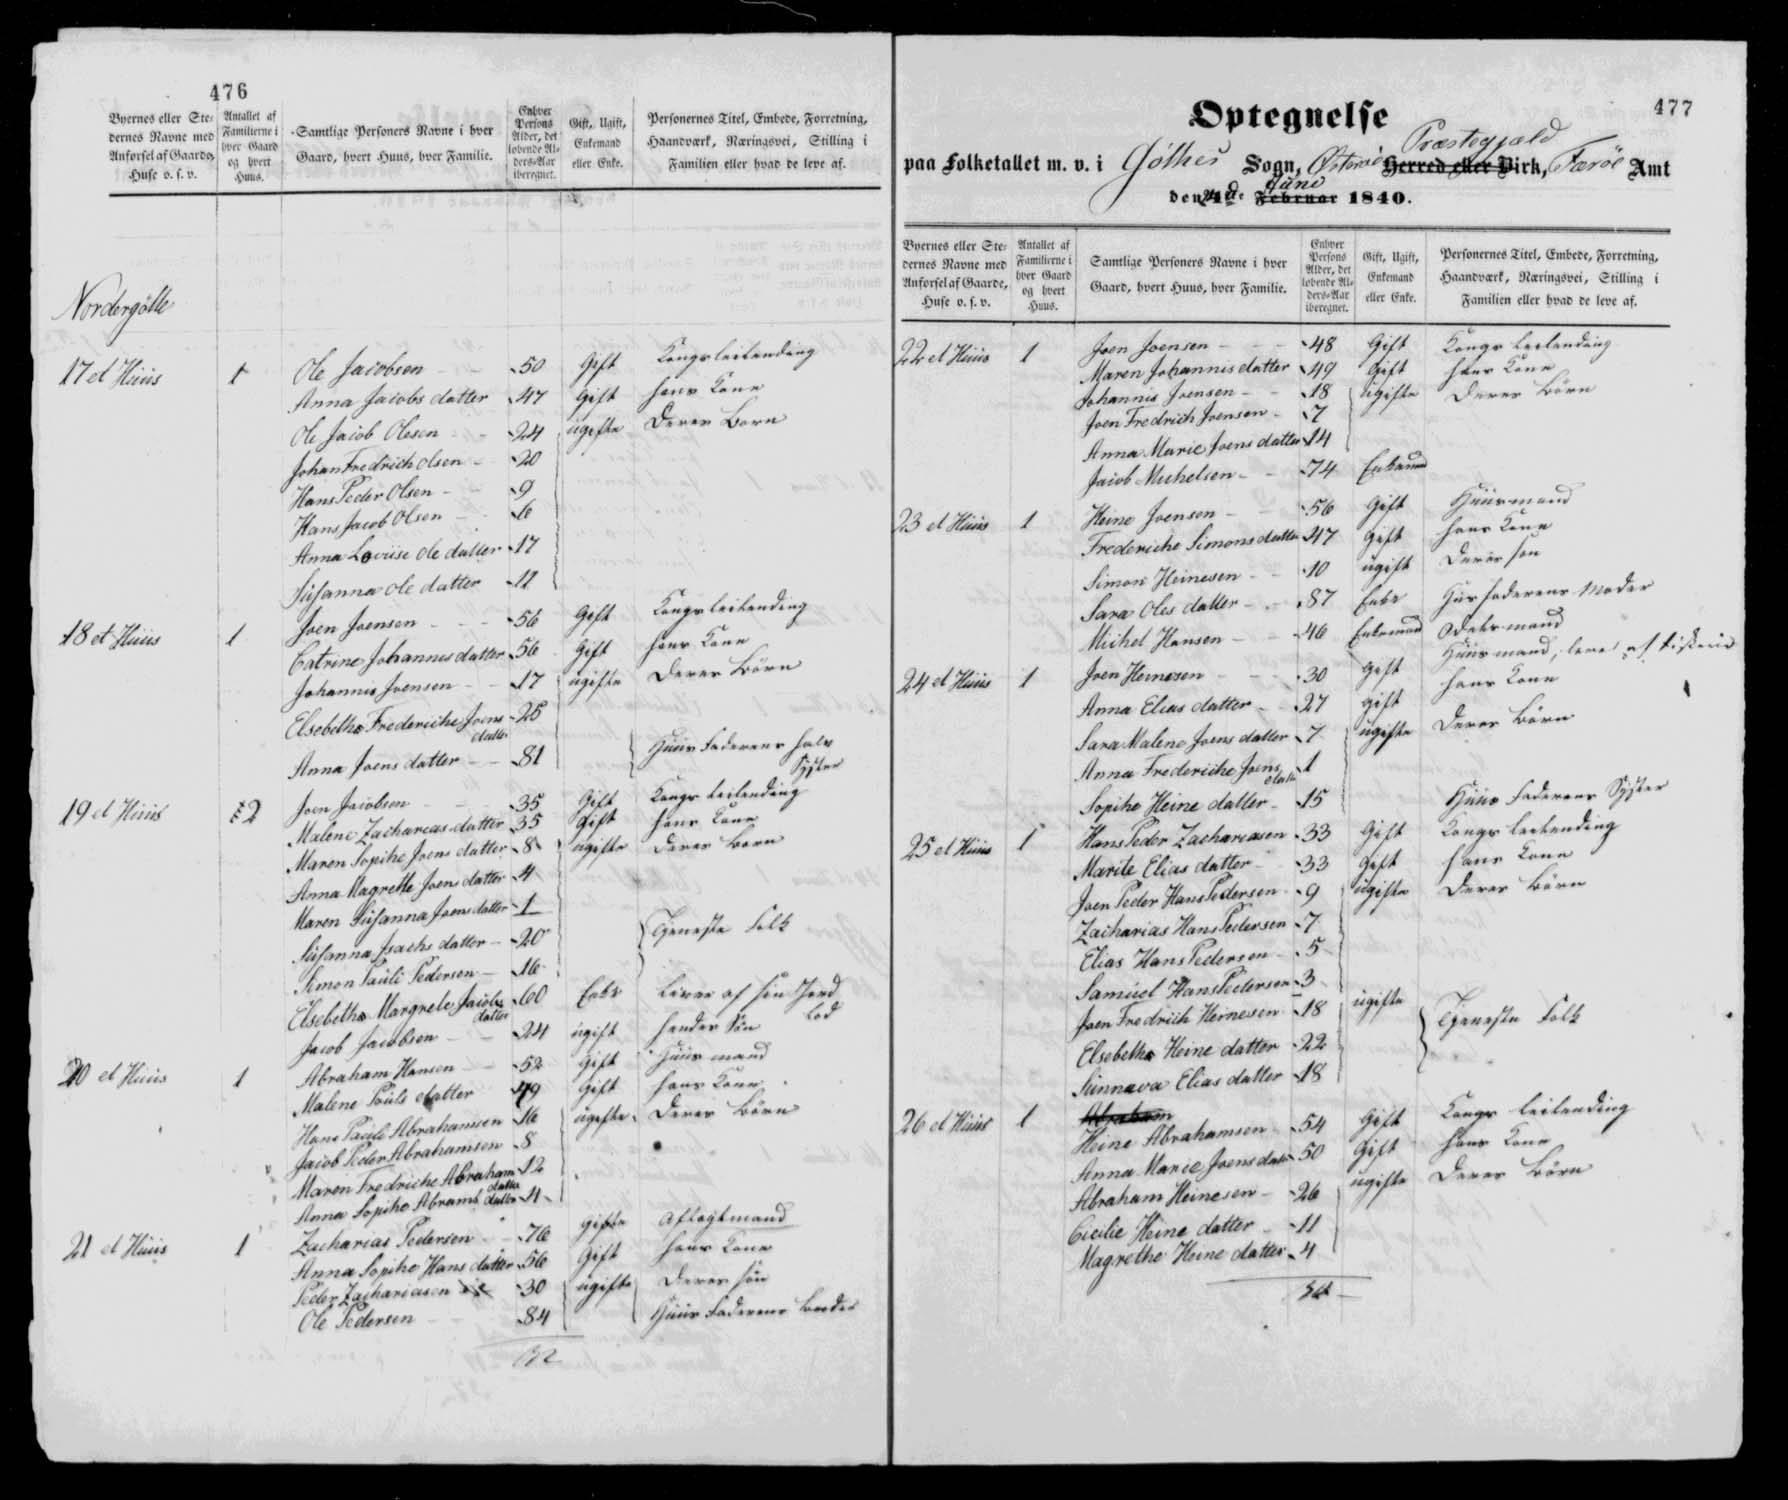 476
Byernes eller Ste-
dernes Navne med
Anførsel af Gaarde,
Huse o. s. v.
Antallet af
Familierne i
hver Gaard
og hvert
Huus.
Samtlige Personers Navne i hver
Gaard, hvert Huus, hver Familie.
Enhver
Persons
Alder, det
løbende Al-
ders-Aar
iberegnet.
Gift, Ugift,
Enkemand
eller Enke.
Personernes Titel, Embede, Forretning,
Haandværk, Næringsvei, Stilling i
Familien eller hvad de leve af.
Nordergøtte
17 et Huus 1 Ole Jacobsen 50 Gift Kongs leilending
Anna Jacobs datter 47 Gift hans Kone
Ole Jacob Olesen 24 ugifte Deres Børn
Johan Fredrich Olsen 20
Hans Peder Olsen 9
Hans Jacob Olsen 6
Anna Loviise Ole datter 17
Susanna Ole datter 11
18 et Huus 1 Joen Joensen 56 Gift Kongs leilending
Catrine Johannes datter 56 Gift hans Kone
Johannis Joensen 17 ugifte Deres Børn
Elsebetha Frederiche Joens 25
datter
Anna Joens datter 81 Huus Faderens halv
Syster
19 et Huus 2 Joen Jacobsen 35 Gift Kongs leilending
Malene Zacharias datter 35 Gift hans Kone
Maren Sophie Joens datter 8 ugifte Deres Børn
Anna Magrette Joens datter 4
Maren Susanna Joens datter 1
Susanna Isachs datter 20 Tjeneste Folk
Simon Pauli Pedersen 16
Elsebetha Margrete Jacobs 60 Enke Lever af sin Jord
datter lod
Jacob Jacobsen 24 ugift hendes Søn
20 et Huus 1 Abraham Hansen 52 Gift Huus mand
Malene Pouls datter 49 Gift hans Kone
Hans Pauli Abrahamsen 16 ugifte Deres Børn
Jacob Peder Abrahamsen 8
Maren Fredriche Abraham 12
datter
Anna Sophie Abrams datter 4
21 et Huus 1 Zacharias Pedersen 76 gifte Aflegtmand
Anna Sophie Hans datter 56 Gift hans Kone
Peder Zachariasen 30 ugifte Deres søn
Ole Pedersen 84 Huus Faderens Broder
32
477
Optegnelse
paa Folketallet m. v. i Gøthes Sogn, Østerøe Herred eller Birk, Præstegjæld Færøe Amt
den 4de Februar Juni 1840.
Byernes eller Ste-
dernes Navne med
Anførsel af Gaarde,
Huse o. s. v.
Antallet af
Familierne i
hver Gaard
og hvert
Huus.
Samtlige Personers Navne i hver
Gaard, hvert Huus, hver Familie.
Enhver
Persons
Alder, det
løbende Al-
ders-Aar
iberegnet.
Gift, Ugift,
Enkemand
eller Enke.
Personernes Titel, Embede, Forretning,
Haandværk, Næringsvei, Stilling i
Familien eller hvad de leve af.
22 et Huus 1 Joen Joensen 48 Gift Kongs leilending
Maren Johannis datter 49 Gift hans Kone
Johannis Joensen 18 ugifte Deres Børn
Joen Fredrich Joensen 7
Anna Marie Joens datter 14
Jacob Michelsen 74 Enkemand
23 et Huus 1 Heine Joensen 56 Gift Huusmand
Frederiche Simons datter 47 Gift hans Kone
Simon Heinesen 10 ugift Deres søn
Sara Oles datter 87 Enke Huusfaderens Moder
Michel Hansen 46 Enkemand Odelsmand
24 et Huus 1 Joen Heinesen 30 Gift Huusmand, lever af Fiskerie
Anna Elias datter 27 gift hans Kone
Sara Malene Joens datter 7 ugifte Deres Børn
Anna Frederiche Joens 1
datter
Sophie Heine datter 15 Huus Faderens Syster
25 et Huus 1 Hans Peder Zachariasen 33 Gift Kongs leilending
Marite Elias datter 33 Gift hans Kone
Joen Peder Hans Pedersen 9 ugifte Deres Børn
Zacharias Hans Pedersen 7
Elias Hans Pedersen 5
Samuel Hans Pedersen 3
Joen Fredrich Heinesen 18 ugifte Tjeneste Folk
Elsebetha Heine datter 22
Sunnava Elias datter 18
Abraham
26 et Huus 1 Heine Abrahamsen 54 Gift Kongs leilending
Anna Marie Joens datter 50 Gift hans Kone
Abraham Heinesen 26 ugifte Deres Børn
Cicilie Heine datter 11
Magrethe Heine datter 4